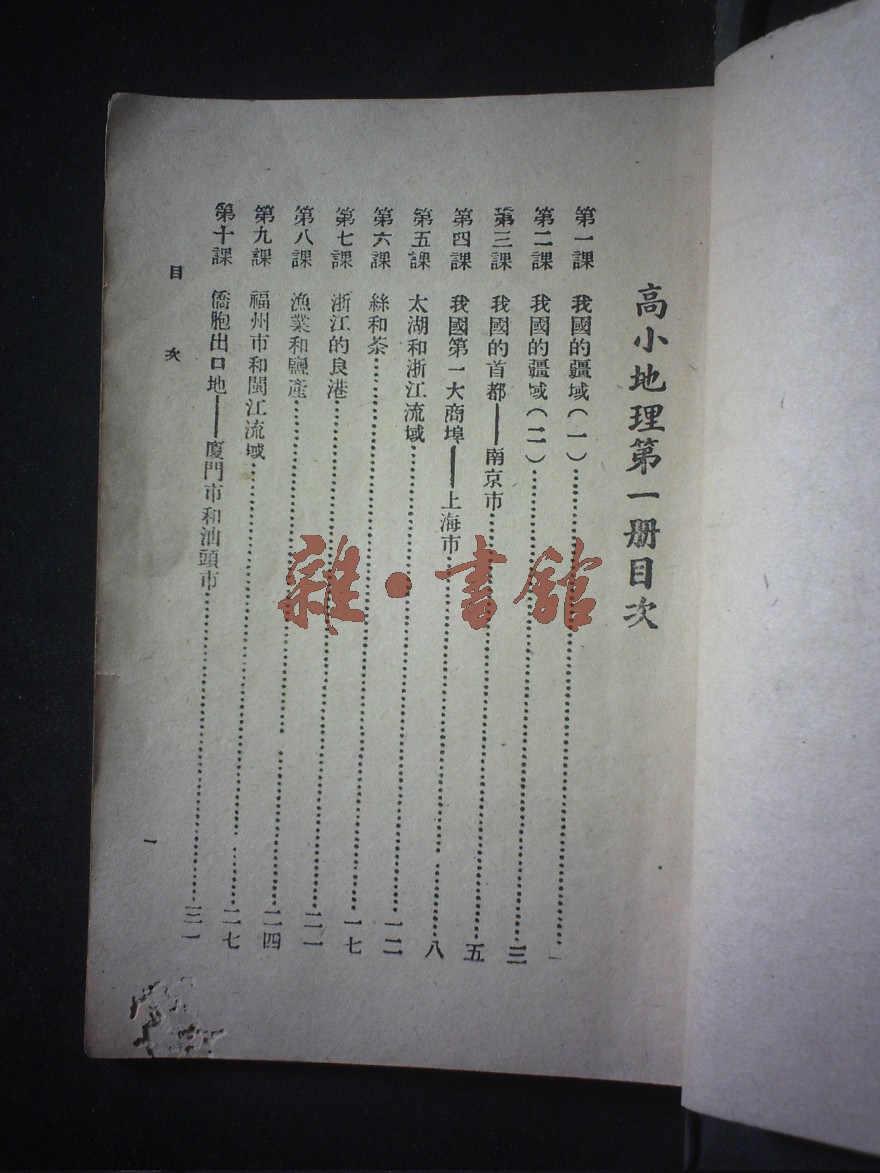 高小地理第一册目次
第一課 我國的疆域(一)…………一
第二課 我國的疆域(二)…………三
第三課 我國的首都——南京市…………五
第四課 我國第一大商埠——上海市…………八
第五課 太湖和浙江流域…………一二
第六課 絲和茶…………一七
第七課 浙江的良港…………二一
第八課 漁業和鹽產…………二四
第九課 福州市和閩江流域…………二七
第十課 僑胞出口地——廈門市和汕頭市…………三一
目次
一
雜·書館